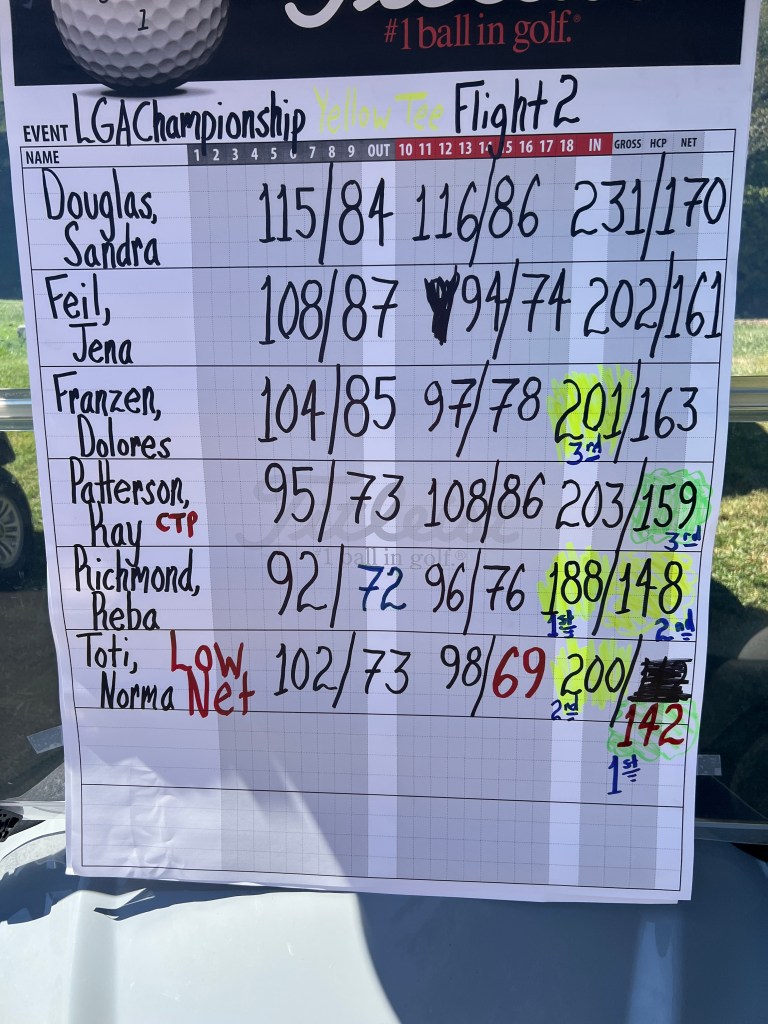 1
#1 ball in golf.®
EVENT LGA Championship Yellow Tee Flight 2
NAME 1 2 3 4 5 6 7 8 9 OUT 10 11 12 13 14 15 16 17 18 IN GROSS HCP NET
Douglas,
Sandra 115/84 116/86 231/170
Feil,
Jena 108/87 94/74 202/161
Franzen,
Dolores 104/85 97/78 201/163
3rd
Patterson,
Kay CTP 95/73 108/86 203/159
3rd
Titleist
#1 ball in golf.®
Richmond,
Reba 92/72 96/76 188/148
1st 2nd
Toti,
Norma Low Net 102/73 98/69 200/
2nd 142
1st